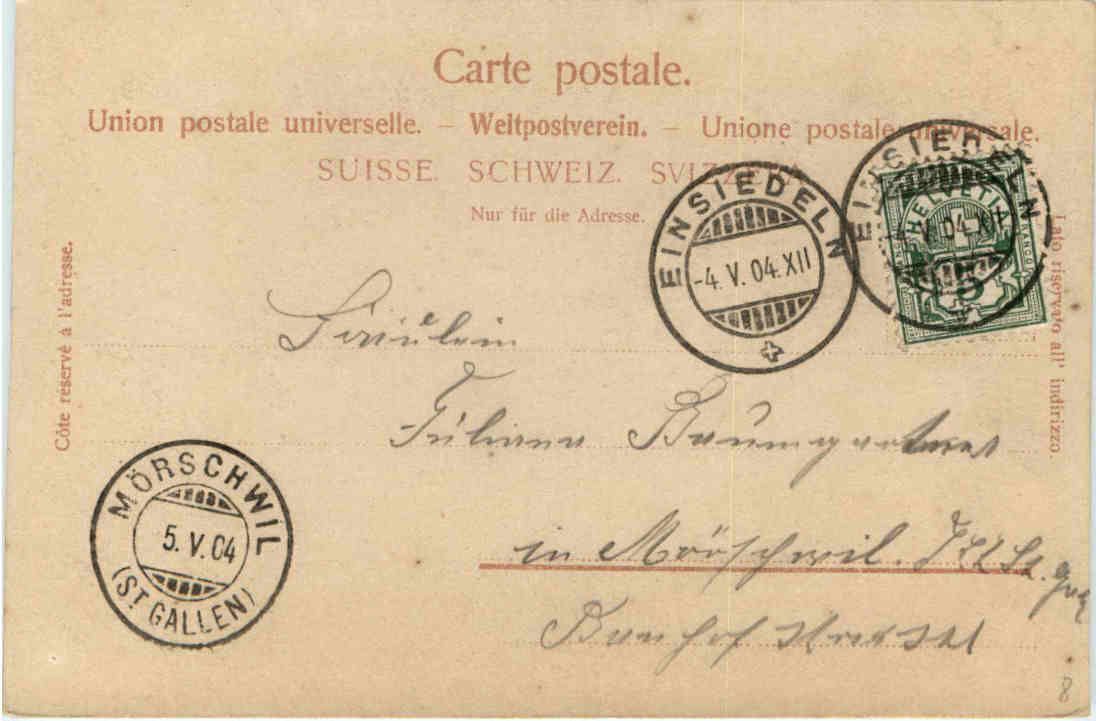 Carte postale.
Union postale universelle. – Weltpostverein. – Unione postale universale.
SUISSE. SCHWEIZ. SVIZZERA
Nur für die Adresse.
Côte reservé à l'adresse.
Lato riservato all' indirizzo.
EINSIEDELN
-4. V. 04. XII
EINSIEDELN
-4. V. 04. XII
HELVETIA
FRANCO
5
Fräulein
Juliana Baumgartner
in Mörschwil.
Bahnhof
MÖRSCHWIL
5. V. 04
(ST GALLEN)
8